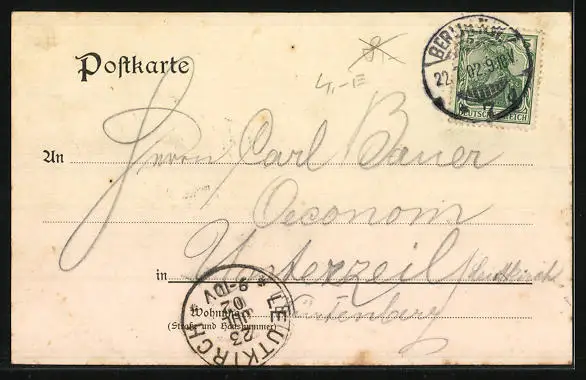 Postkarte
8.-
4,-E
BERLIN N.W.
22. 02.9-10V
* 7
DEUTSCHES REICH
An Herrn Carl Bauer
Oeconom
in Unterzeil /Leutkirch
Wohnung
(Straße und Hausnummer)
* LEUTKIRCH *
23
02
9-10V